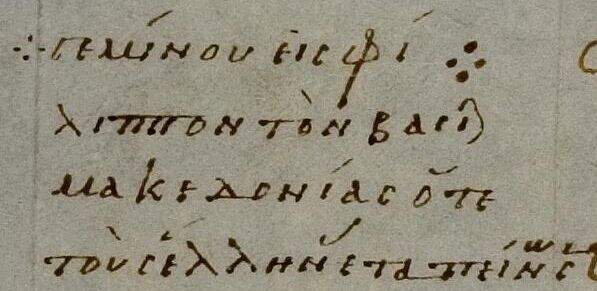 γεμίνου εἰς φί
λιππον τὸν βασιλ
μακεδονίας ὅτε
τοὺς ἕλλην ἐταπείνωσε